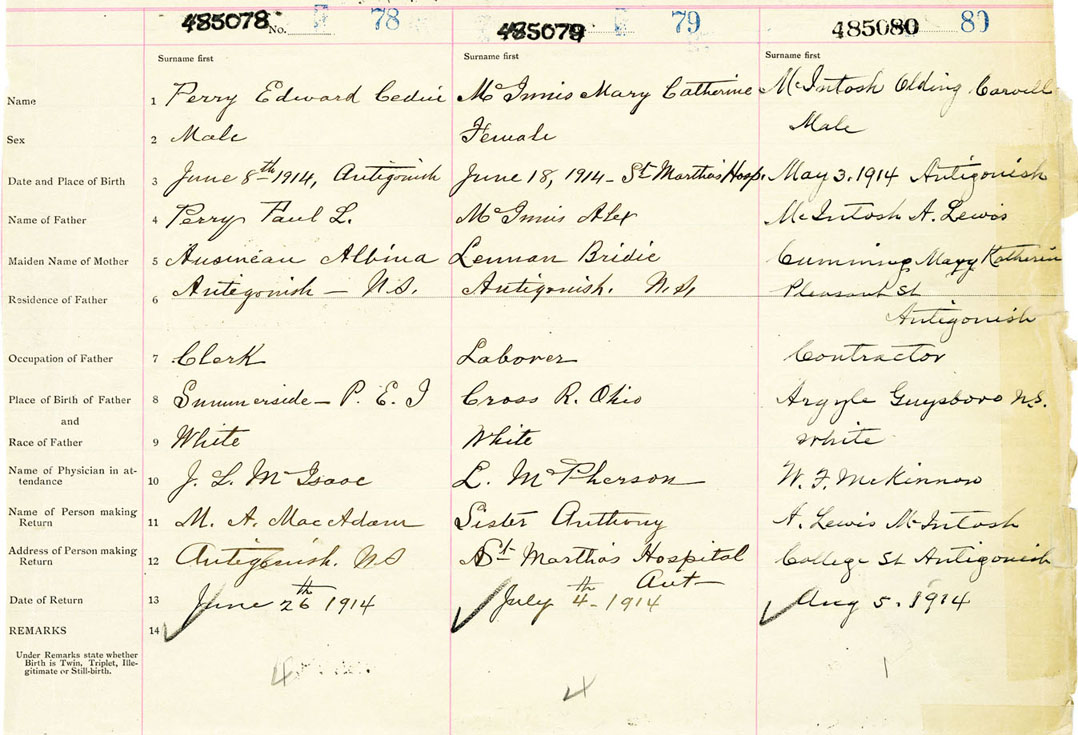 485078 No. 78 485079 79 485080 80
Surname first Surname first Surname first
Name 1 Perry Edward Cedric McInnis Mary Catherine McIntosh Olding Carvell
Sex 2 Male Female Male
Date and Place of Birth 3 June 8th 1914, Antigonish June 18, 1914 - St Martha's Hosp. May 3. 1914 Antigonish
Name of Father 4 Perry Paul L. McInnis Alex McIntosh A. Lewis
Maiden Name of Mother 5 Albina Lennan Bridie Cumming Mary Katherin
Residence of Father 6 Antigonish - N.S. Antigonish. N.S. Pleasant St
Antigonish
Occupation of Father 7 Clerk Laborer Contractor
Place of Birth of Father 8 Summerside - P. E. I Cross R. Ohio Argyle Guysboro N.S.
and
Race of Father 9 White White White
Name of Physician in at-
tendance 10 J. L. McIsaac L. McPherson W. F. McKinnon
Name of Person making
Return 11 M. A. MacAdam Sister Anthony A. Lewis McIntosh
Address of Person making
Return 12 Antigonish. NS St. Martha's Hospital College St Antigonish
Ant
Date of Return 13 June 26th 1914 July 4th - 1914 Aug 5. 1914
REMARKS 14
Under Remarks state whether
Birth is Twin, Triplet, Ille-
gitimate or Still-birth.
4 4 1